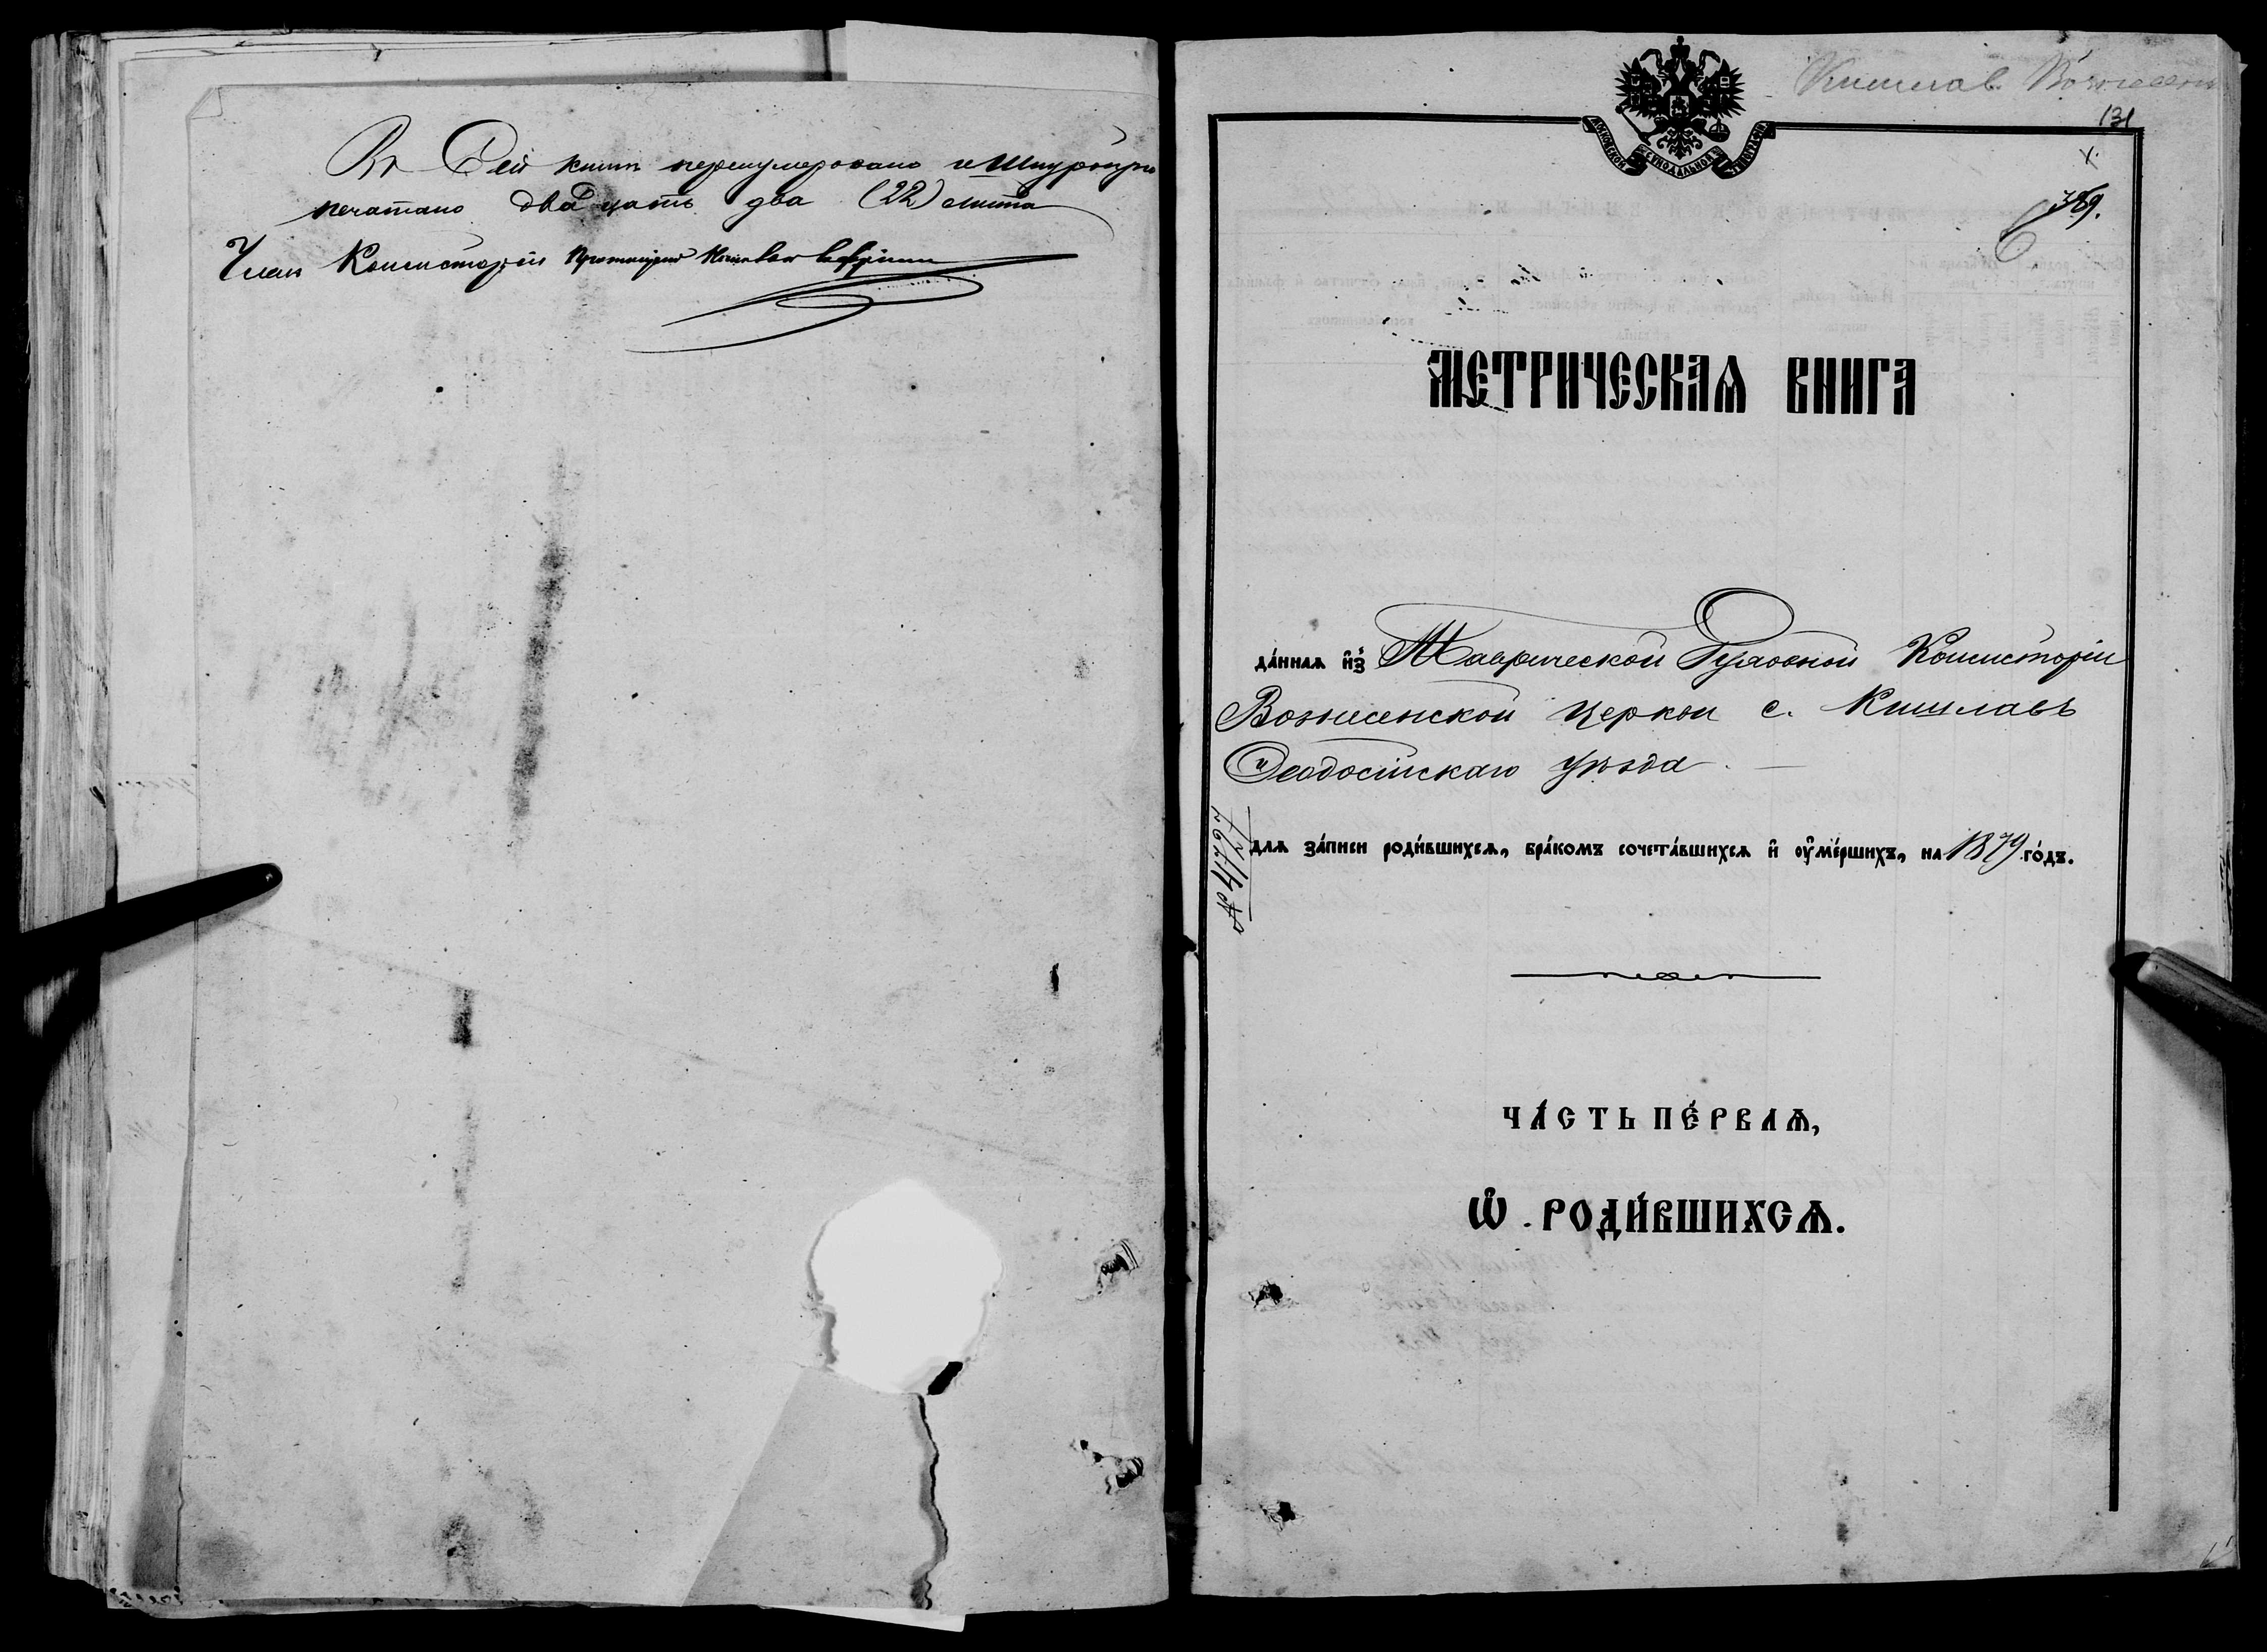 Въ Сей книгѣ перенумеровано и Шнуропри
печатано двадцать два (22) листа
Членъ Консисторіи Протоіерей
Кишлав. Вознесен
131
389.
МОСКОВСКОЙ СѴНОДАЛЬНОЙ ТИПОГРАФІИ
МЕТРИЧЕСКАѦ КНИГА
да́ннаѧ и҆з̾ Таврической Духовной Консисторіи
Вознесенской церкви с. Кишлавъ
Ѳеодосійскаго уѣзда
для за́писи роди́вшихсѧ, бра́комъ сочета́вшихсѧ и҆ ᲂу҆ме́ршихъ, на 1879 го́дъ.
ЧА́СТЬ ПЕ́РВАѦ,
Ѡ҆ РОДИ́ВШИХСѦ.